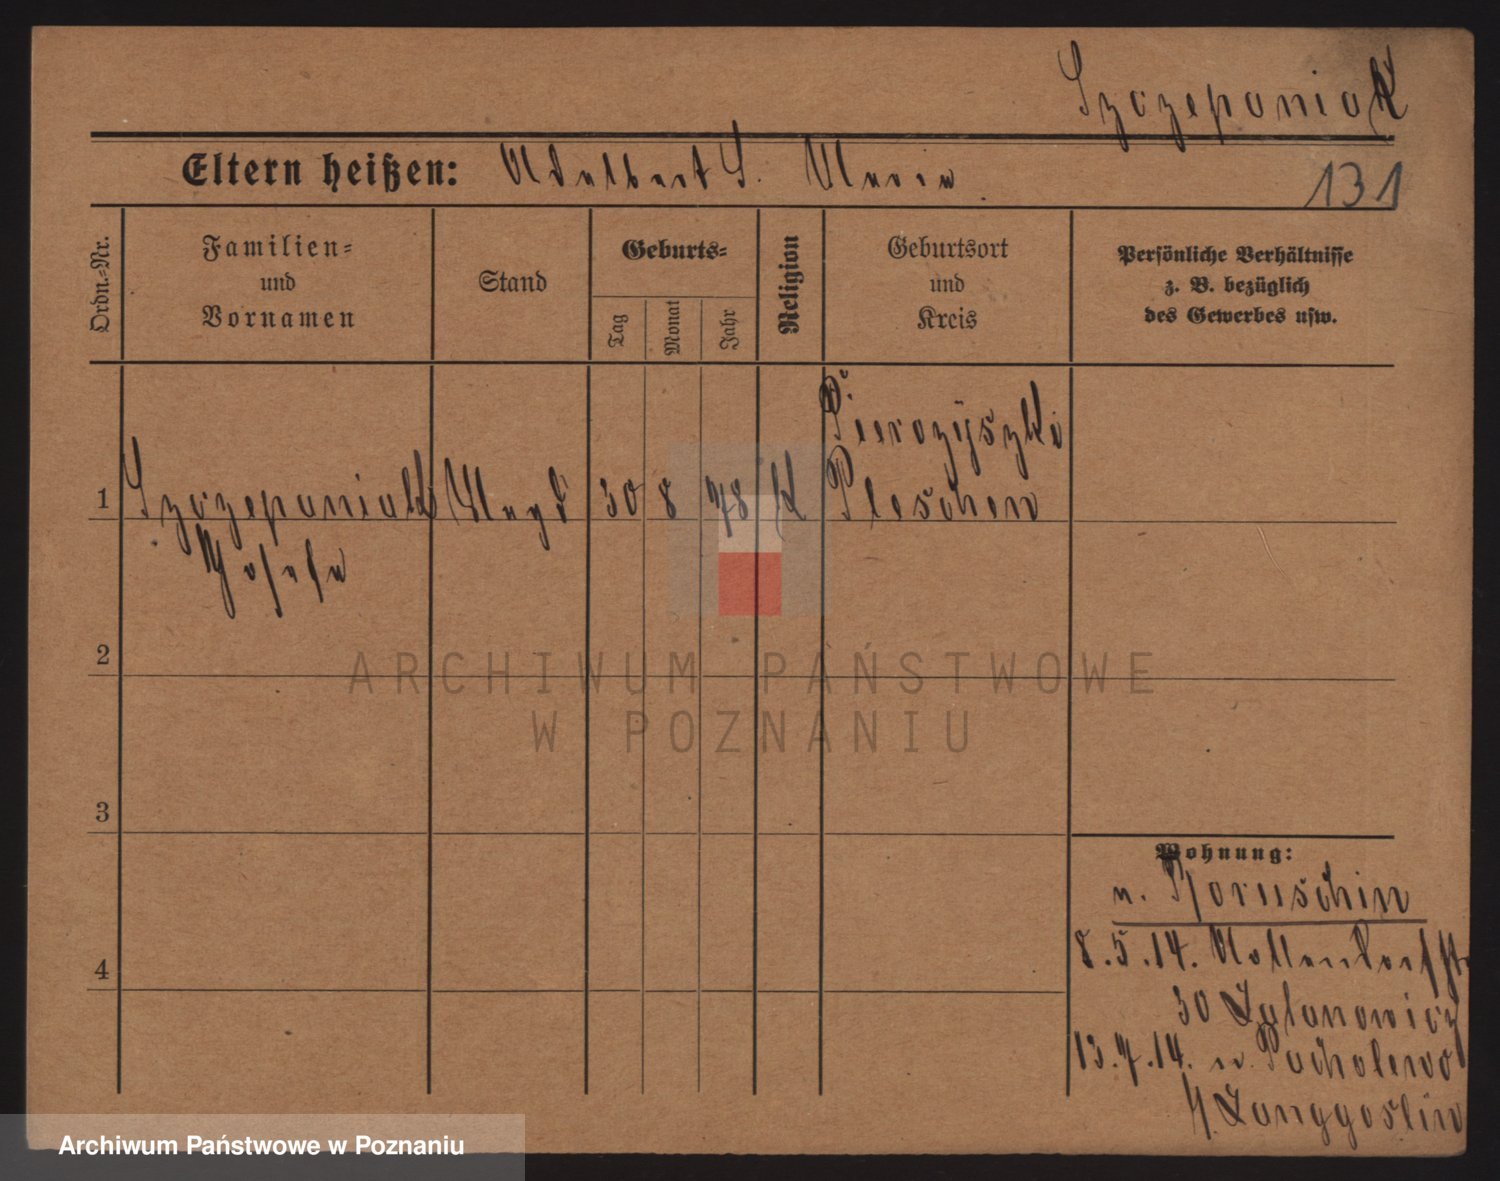 Szczepaniak
Eltern heißen: Adalbert S. Maria
131
Ordn.-Nr.
Familien-
und
Vornamen
Stand
Geburts-
Tag
Monat
Jahr
Religion
Geburtsort
und
Kreis
Persönliche Verhältnisse
z. B. bezüglich
des Gewerbes usw.
1
Szczepaniak Magd 30 8 78 K Pleschen
Josefa
2
ARCHIWUM PAŃSTWOWE
W POZNANIU
3
Wohnung:
n.
8.5.14. Nollendorfstr
30
13.7.14. n. Pucholewo
4
Langgoslin
Archiwum Państwowe w Poznaniu